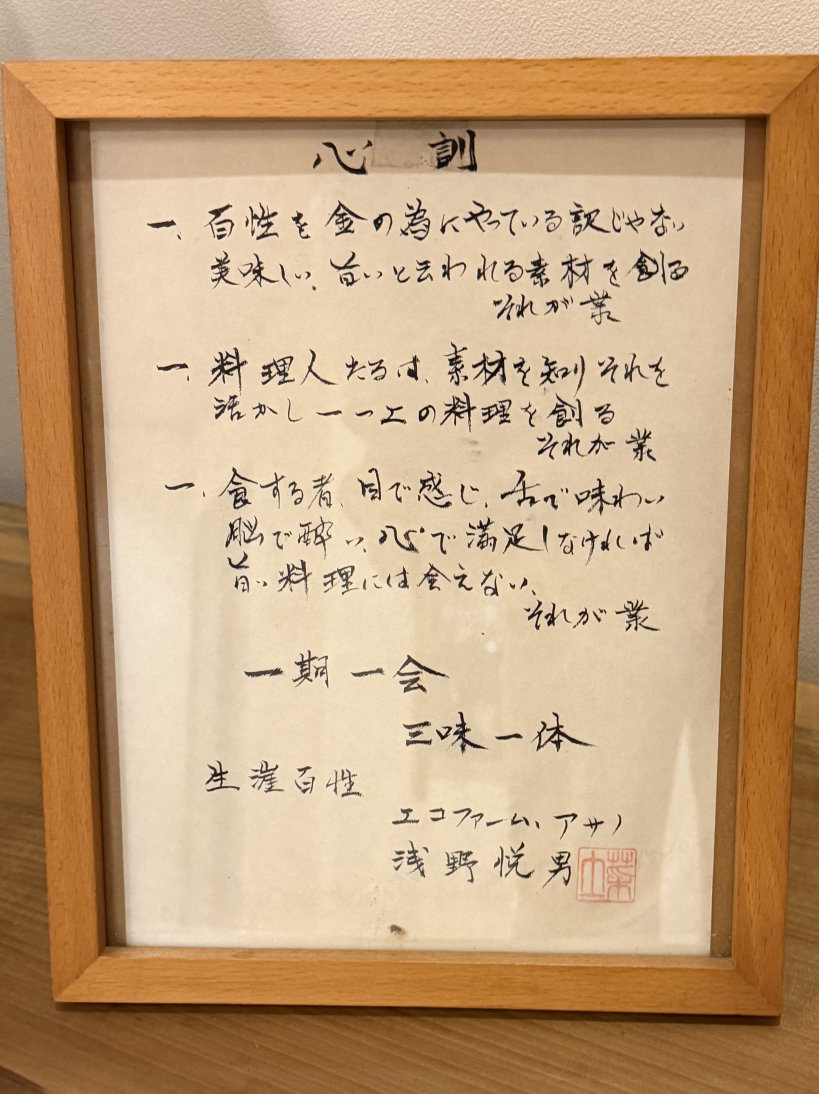 心訓
一、百性を金の為にやっている訳じゃない
美味しい、旨いと云われる素材を創る
それが業
一、料理人たるは、素材を知りそれを
活かし一一上の料理を創る
それが業
一、食する者、目で感じ、舌で味わい
脳で酔い、心で満足しなければ
旨い料理には会えない、
それが業
一期一会
三味一体
生涯百性
エコファーム、アサノ
浅野悦男